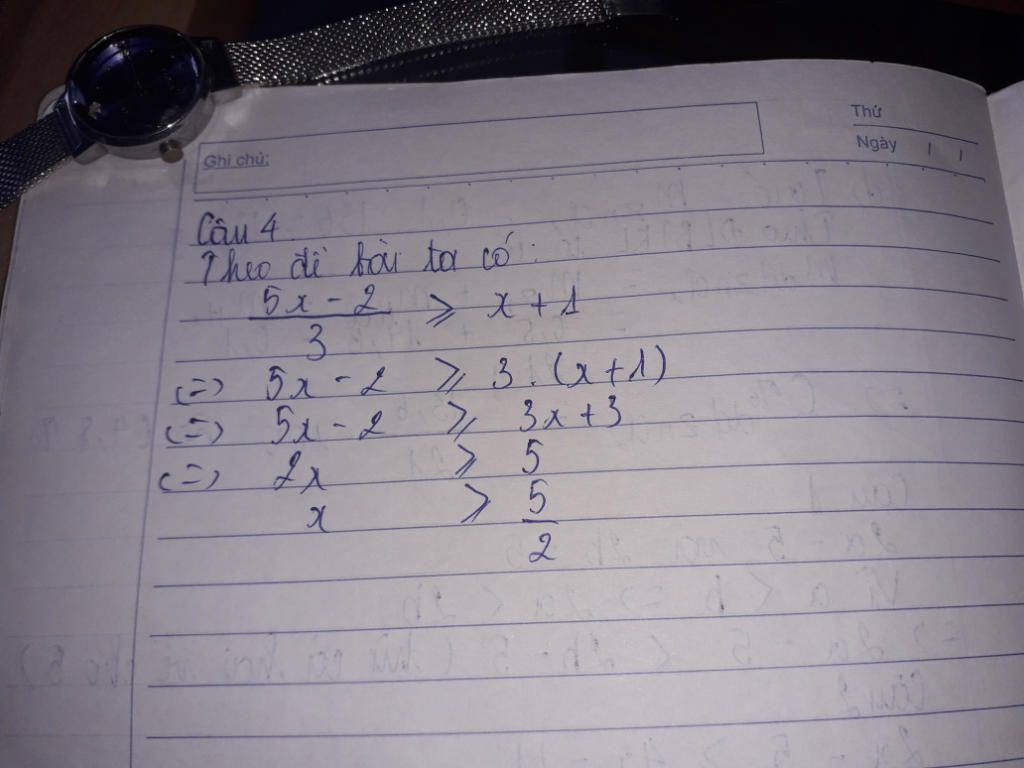 Thứ
Ghi chú:
Ngày
Câu 4
Theo đề bài ta có:
5x - 2 / 3 ⩾ x + 1
(=) 5x - 2 ⩾ 3.(x+1)
(=) 5x - 2 ⩾ 3x+3
(=) 2x ⩾ 5
x ⩾ 5/2